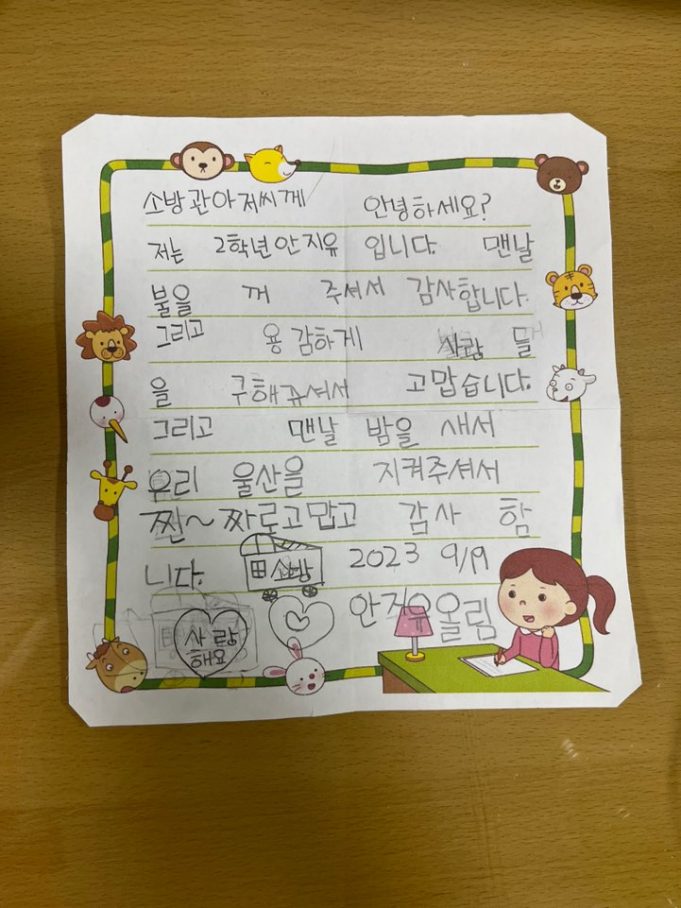 소방관아저씨께 안녕하세요?
저는 2학년 안지유 입니다. 맨날
불을 꺼 주셔서 감사합니다.
그리고 용감하게 사람 들
을 구해쥬셔서 고맙습니다.
그리고 맨날 밤을 새서
우리 울산을 지켜주셔서
찐~짜로고맙고 감사 함
니다. 소방 2023 9/19
안지유올림
사랑
해요